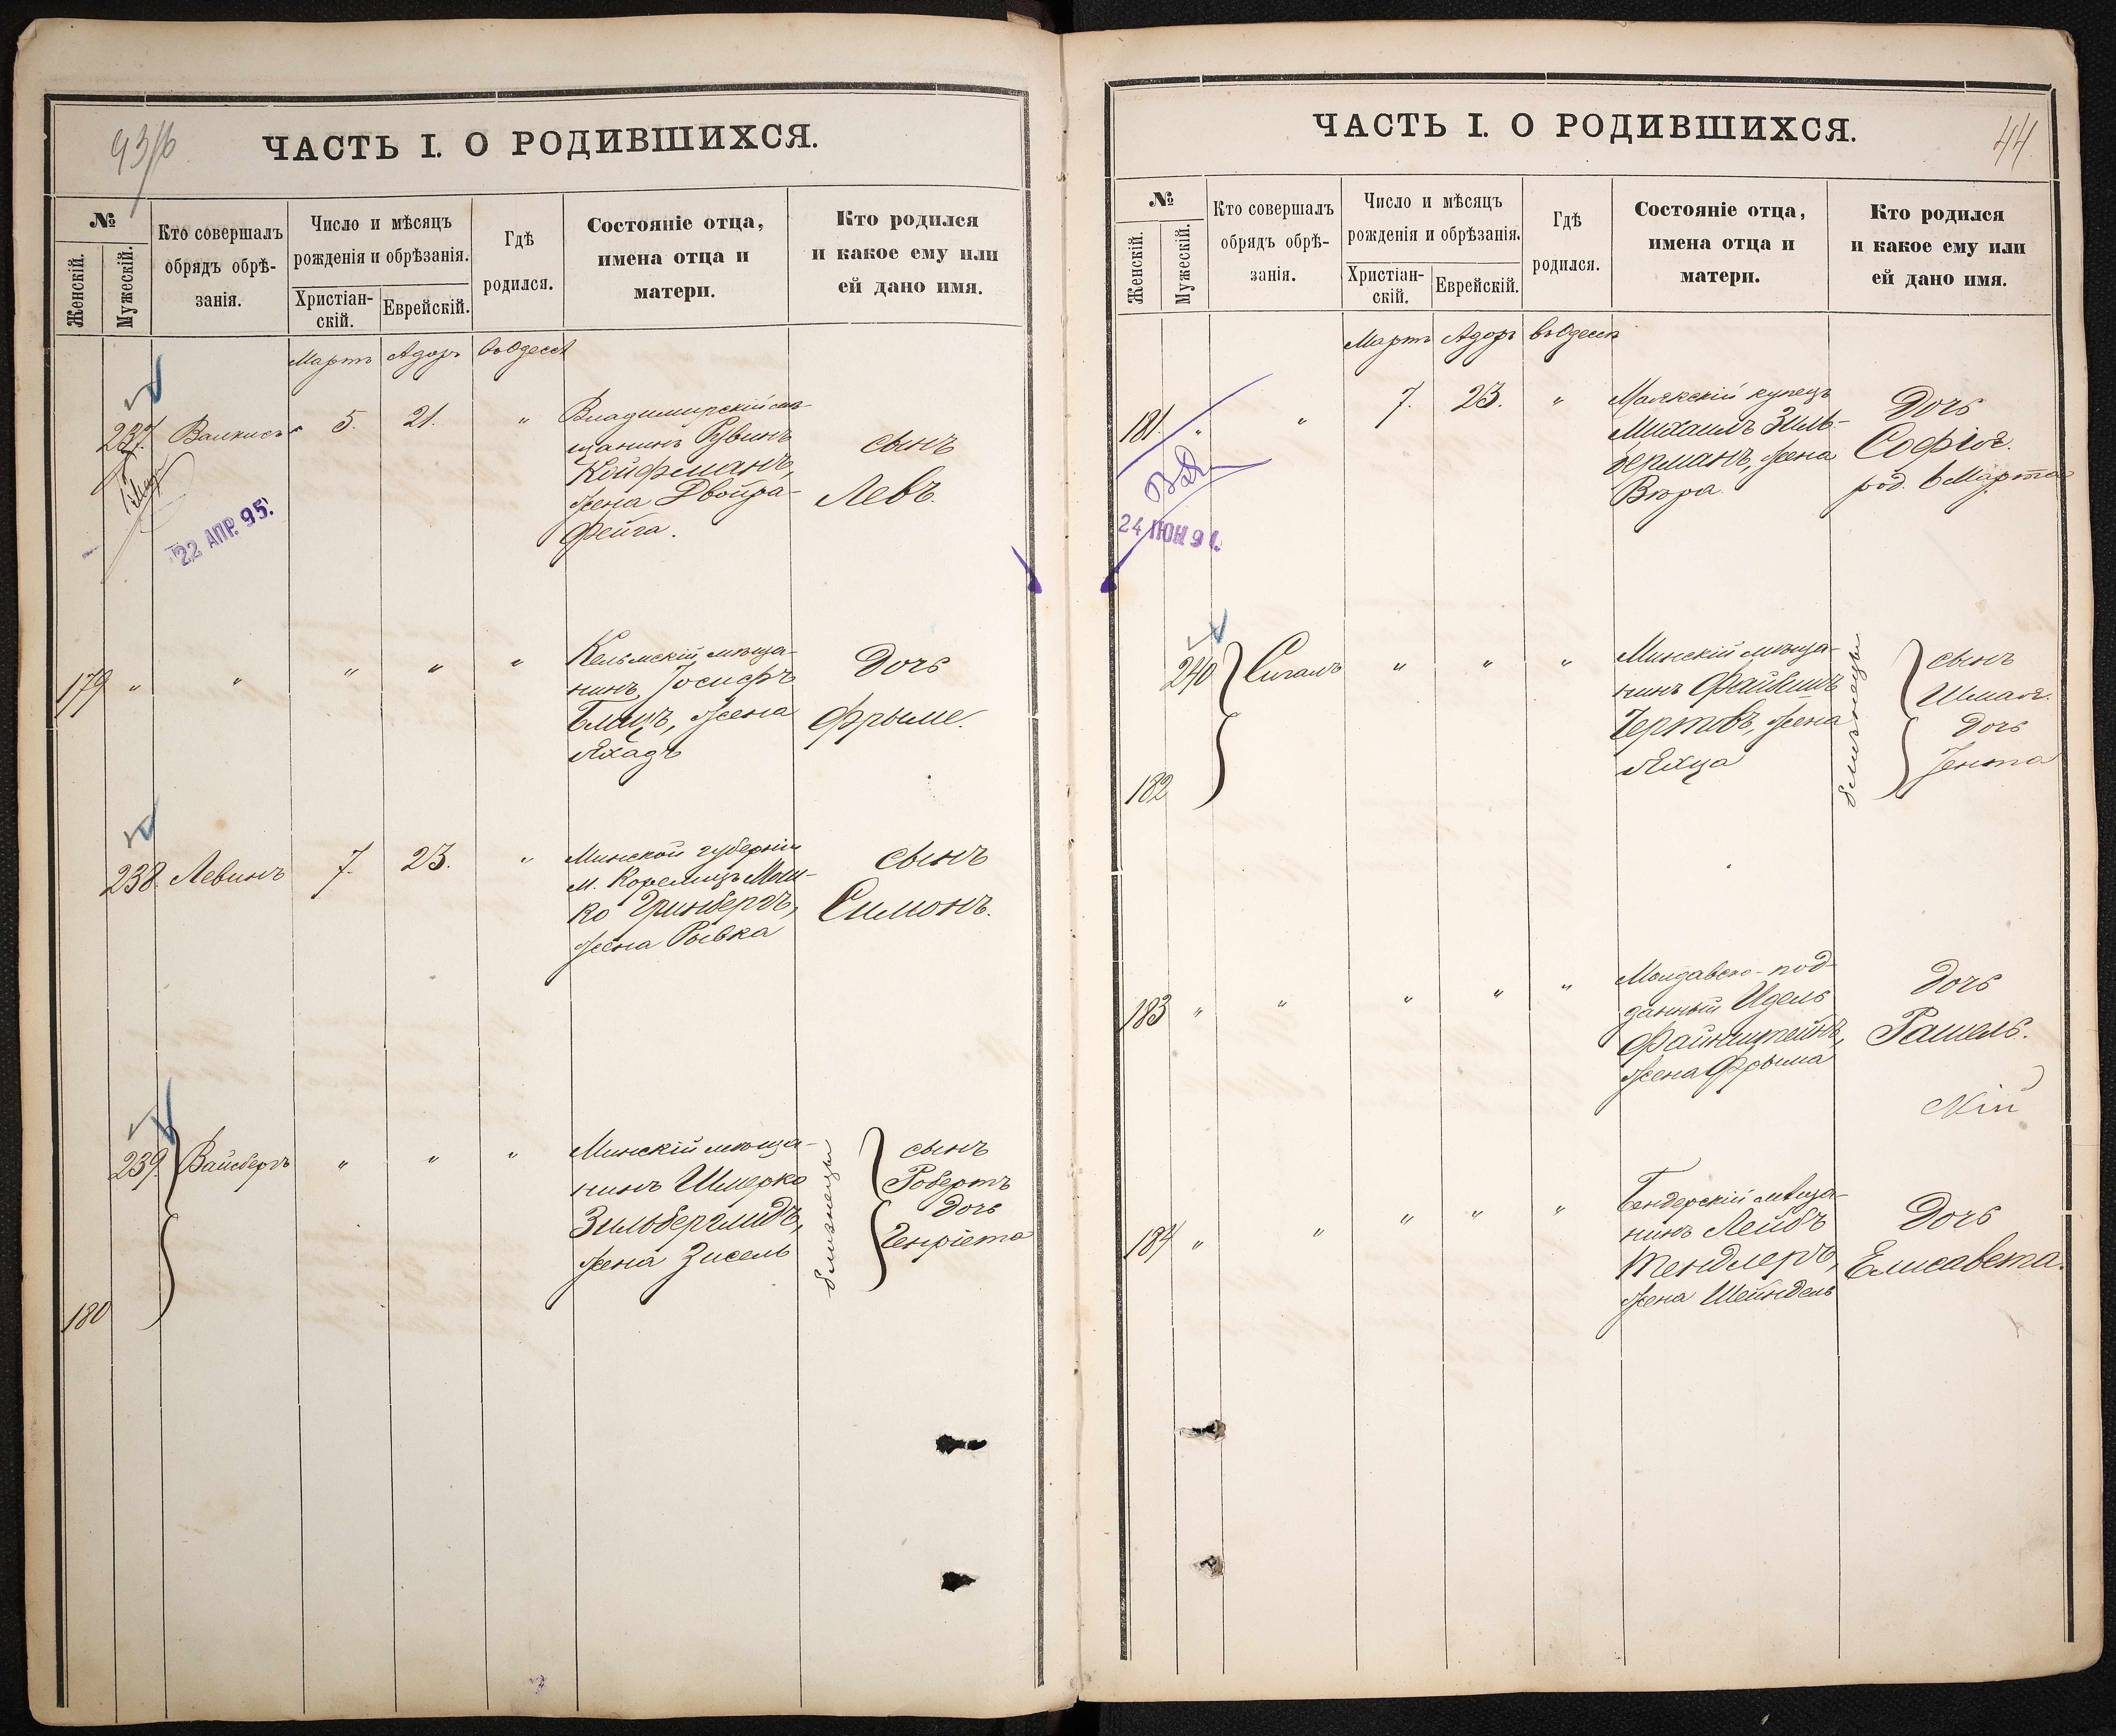 ЧАСТЬ I. О РОДИВШИХСЯ.
№
Женскій.
Мужескій.
Кто совершалъ
обрядъ обрѣ-
занія.
Число и мѣсяцъ
рожденія и обрѣзанія.
Христіан-
скій.
Еврейскій.
Гдѣ
родился.
Состояніе отца,
имена отца и
матери.
Кто родился
и какое ему или
ей дано имя.
Мартъ Адоръ въ Одессѣ
237. 5. 21. "
Владимирскій мѣ-
щанинъ Рувинъ
Койфманъ,
жена Двойра-
Фейга.
сынъ
Левъ.
22 АПР. 95.
179 " " " " "
Кельмскій мѣща-
нинъ Іосифъ
жена
дочь
Фрыме.
238. Левинъ 7. 23. "
Минской губерніи
м. Корелицъ Мош-
ко Гринбергъ,
жена Рывка
сынъ
Симонъ.
239. Вайсбергъ " " "
Минскій мѣща-
нинъ Шмерко
Зильберглидъ,
жена Зисель
близнецы
сынъ
Робертъ
дочь
Генріета
180
ЧАСТЬ I. О РОДИВШИХСЯ.
44
№
Женскій.
Мужескій.
Кто совершалъ
обрядъ обрѣ-
занія.
Число и мѣсяцъ
рожденія и обрѣзанія.
Христіан-
скій.
Еврейскій.
Гдѣ
родился.
Состояніе отца,
имена отца и
матери.
Кто родился
и какое ему или
ей дано имя.
Мартъ Адоръ въ Одессѣ
181. " " 7. 23. "
Маякскій купецъ
Михаилъ Зиль-
берманъ, жена
Вѣра
дочь
Софія.
род. 6 Марта
24 ІЮН 91.
240 Сигалъ " " "
Минскій мѣща-
нинъ Файвишъ
Чертовъ, жена
близнецы
сынъ
Шмая.
дочь
Іента
182
183 " " " " "
Молдавско-под-
данный Идель
Файнштейнъ,
жена Фрыма
дочь
Рашель.
184 " " " " "
Бендерскій мѣща-
нинъ Лейбъ
Тендлеръ,
жена Шейндель
дочь
Елисавета.